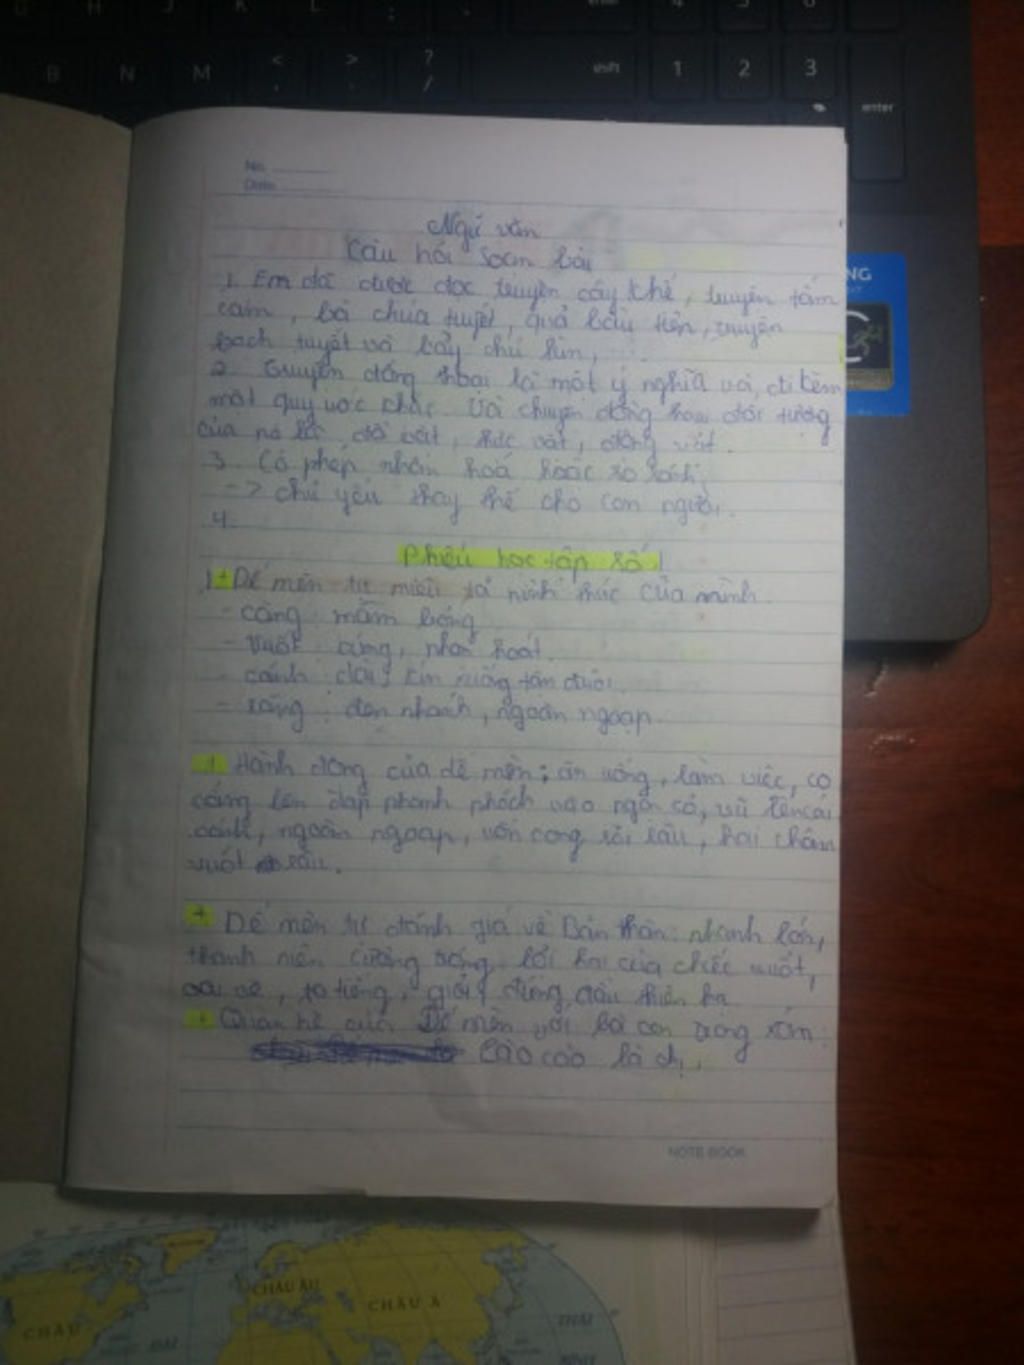 B N M < > ? / shift 1 2 3 enter
No.
Date
Ngữ văn
Câu hỏi soạn bài
1. Em đã được đọc truyện cây khế, truyện tấm
cám, bà chúa tuyết, quả bầu tiên, truyện
bạch tuyết và bảy chú lùn,
2. truyện đồng thoại là một ý nghĩa và đi kèm
một quy ước khác. Và chuyện đồng thoại đối tượng
của nó là đồ vật, thực vật, động vật.
3. Có phép nhân hoá hoặc so sánh
-> chủ yếu thay thế cho con người.
4.
Phiếu học tập số 1
1 + Dế mèn tự miêu tả hình thức của mình
- càng mẫm bóng
- Vuốt cứng, nhọn hoắt.
- cánh dài, kín xuống tận đuôi
- răng: đen nhánh, ngoàm ngoạp.
+ Hành động của dế mèn: ăn uống, làm việc, co
cẳng lên đạp phanh phách vào ngọn cỏ, vũ lên cái
cánh, ngoàm ngoạp, uốn cong râu, hai chân
vuốt râu.
+ Dế mèn tự đánh giá về Bản thân: nhanh lớn,
thanh niên cường tráng, lợi hại của chiếc vuốt,
oai vệ, to tiếng, giỏi, đứng đầu thiên hạ
+ Quan hệ của Dế mèn với bà con trong xóm:
Cào cào là chị.
NOTE BOOK
CHÂU ÂU
CHÂU Á
CHÂU
THÁI